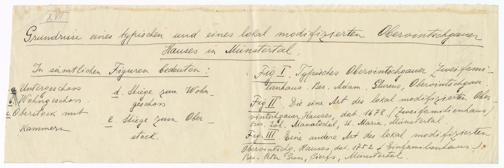 XVI
Grundrisse eines typischen und eines lokal modifizierten Obervintschgauer
Hauses in Münstertal.
In sämtlichen Figuren bedeuten:
Untergeschoss
b. Wohngeschoss
c. Oberstock mit
Kammern
d. Stiege zum Wohn-
geschoss
e. Stiege zum Ober-
stock.
Fig I. Typisches Obervintschgauer Zweifami-
lienhaus. Bes. Adam,
Fig II. Die eine Art des lokal modifizierten Ober-
vintschgau. Hauses, dat. 1678 (Zweifamilienhaus),
St. Maria, Münstertal
Fig. III. Eine andere Art des lokal modifizierten
Obervintschg. Hauses, dat. 1752 (Einfamilienhaus).
Bes. Münstertal